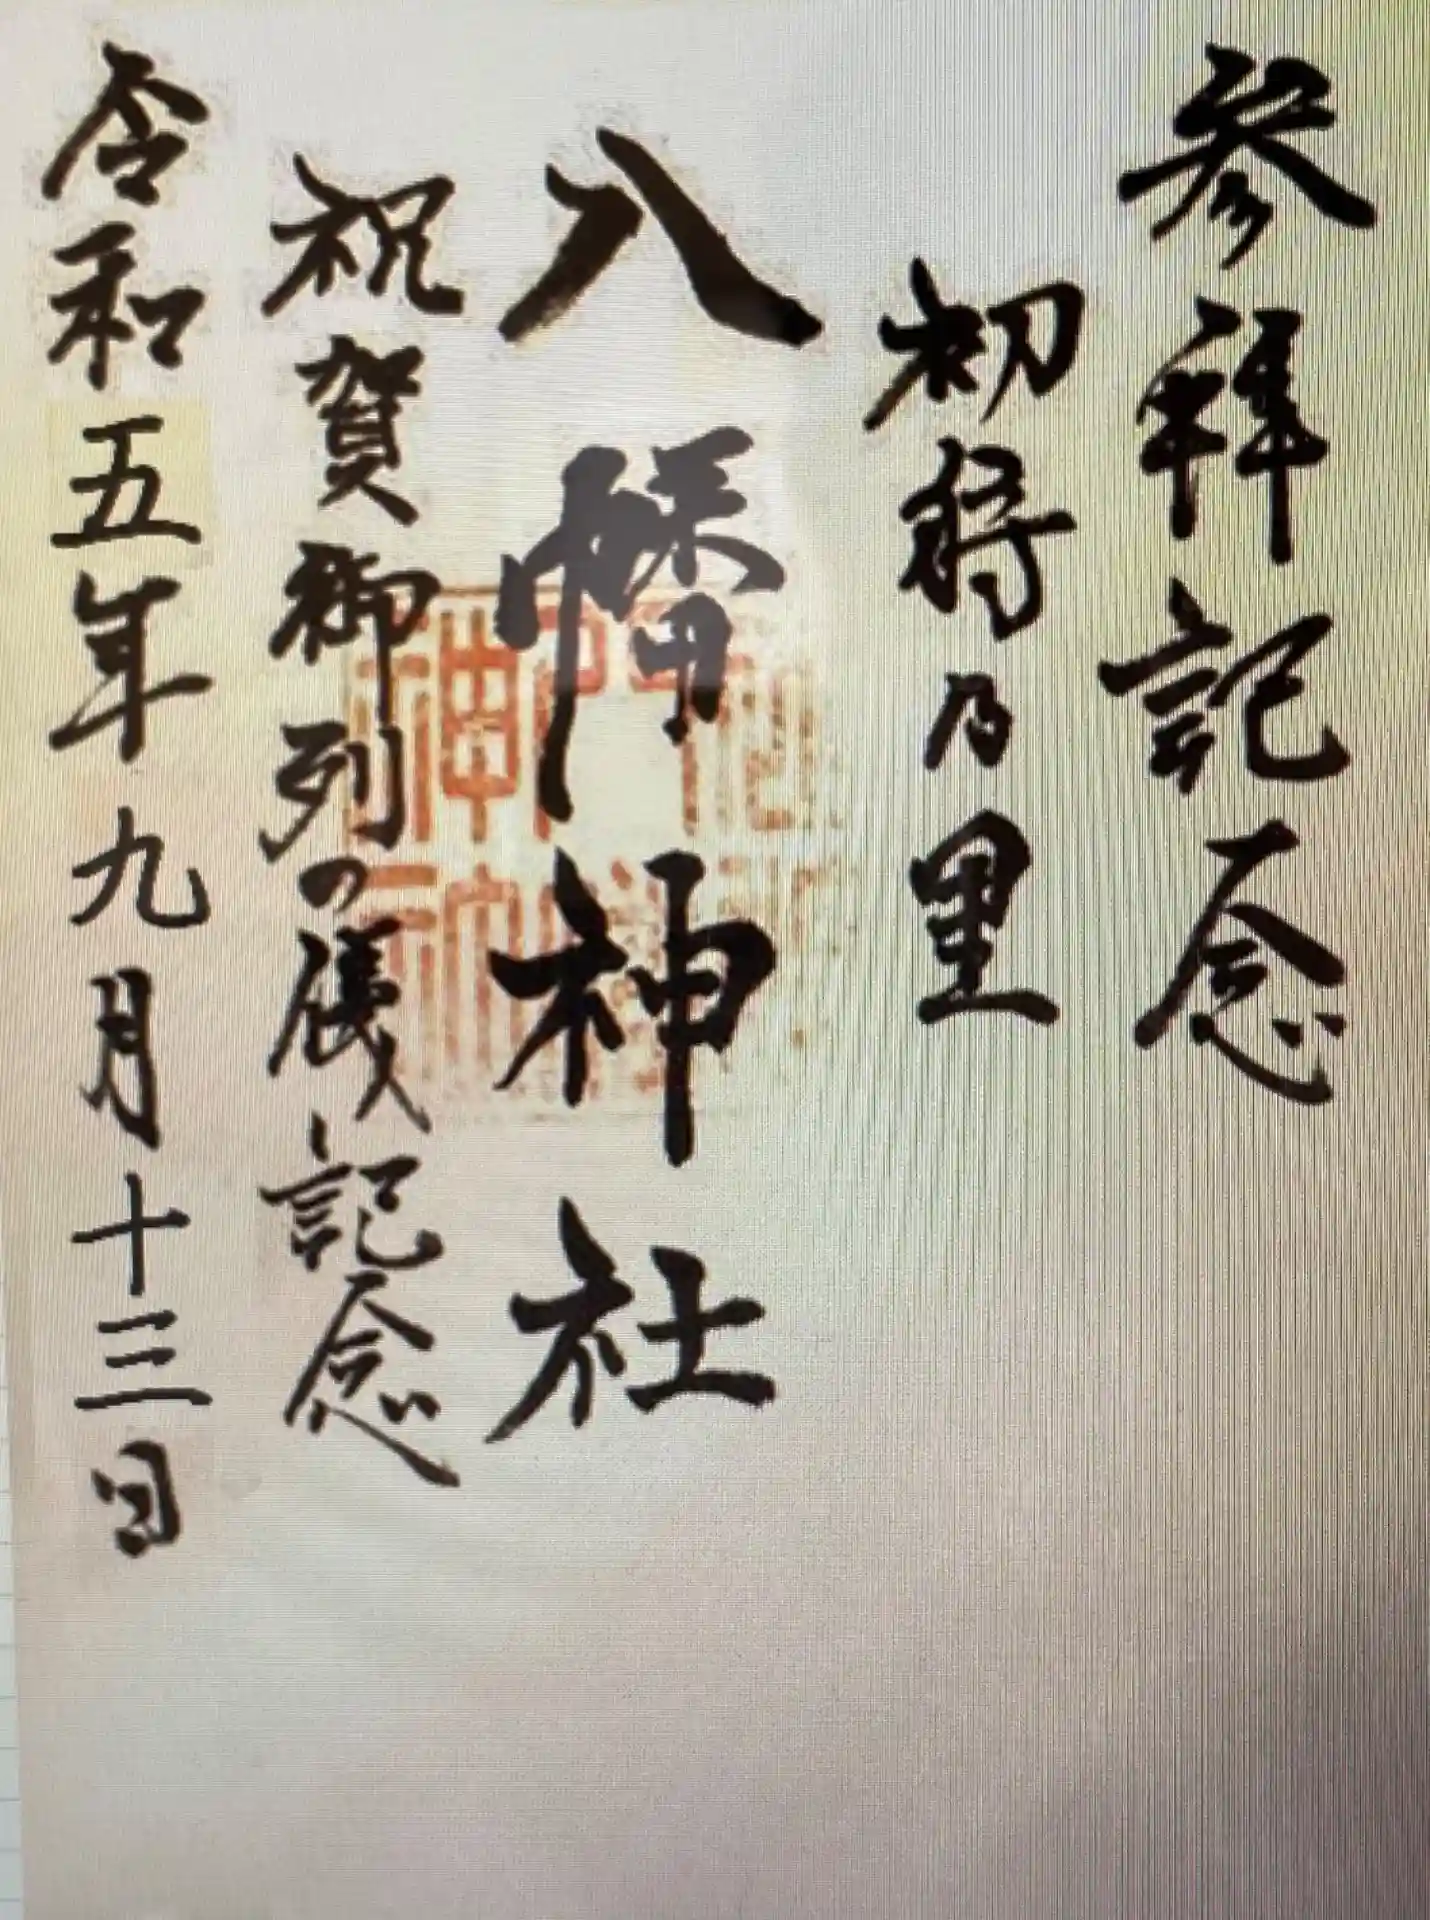 参拝記念
初將乃里
八幡神社
祝賀御列の儀記念
令和五年九月十三日